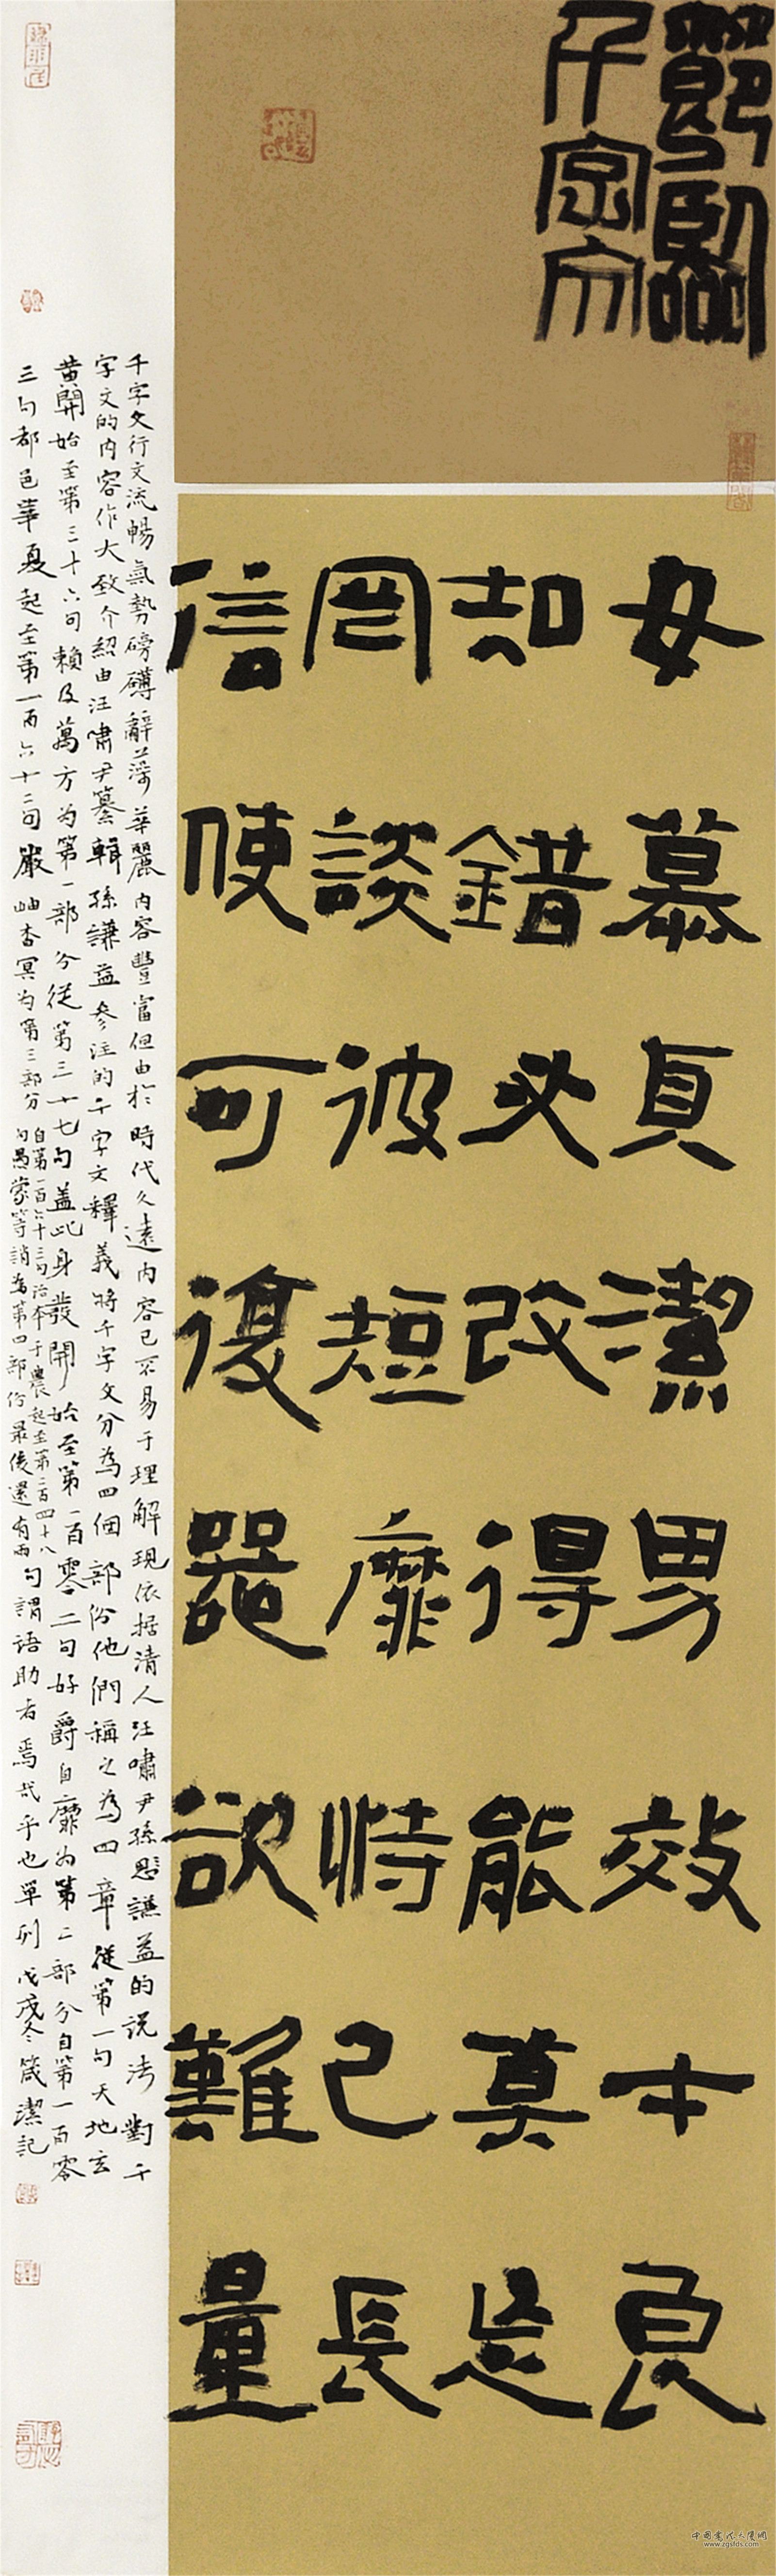 節臨
千字文
女慕貞潔男效才良
知錯必改得能莫忘
罔談彼短靡恃己長
信使可復器欲難量
千字文行文流暢氣勢磅礴辭藻華麗內容豐富但由於時代久遠內容已不易于理解現依据清人汪嘯尹孫謙益的说法對千
字文的內容作大致介紹由汪嘯尹纂輯孫謙益參注的千字文釋義將千字文分為四個部份他們稱之為四章從第一句天地玄
黃開始至第三十六句賴及萬方为第一部分從第三十七句盖此身發開始至第一百零二句好爵自靡为第二部分自第一百零
三句都邑華夏起至第一百六十二句嚴岫杳冥为第三部分
自第一百六十三句治本于農起至第二百四十八
句愚蒙等誚為第四部份最後還有兩
句謂語助者焉哉乎也單列戊戌冬箴潔記
www.zgsfds.com